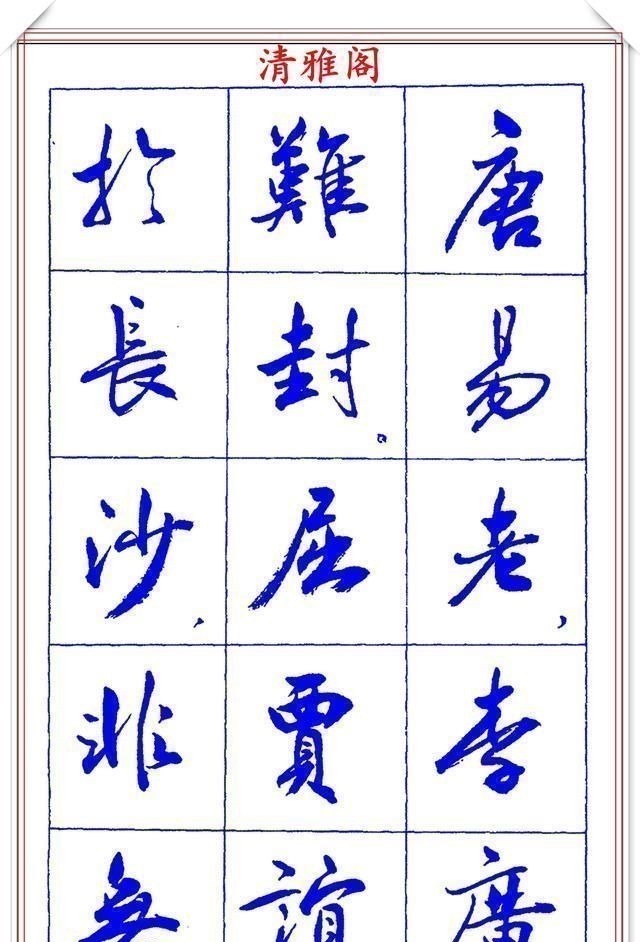 清雅阁
唐易老，李廣
難封。屈賈誼
於長沙，非無